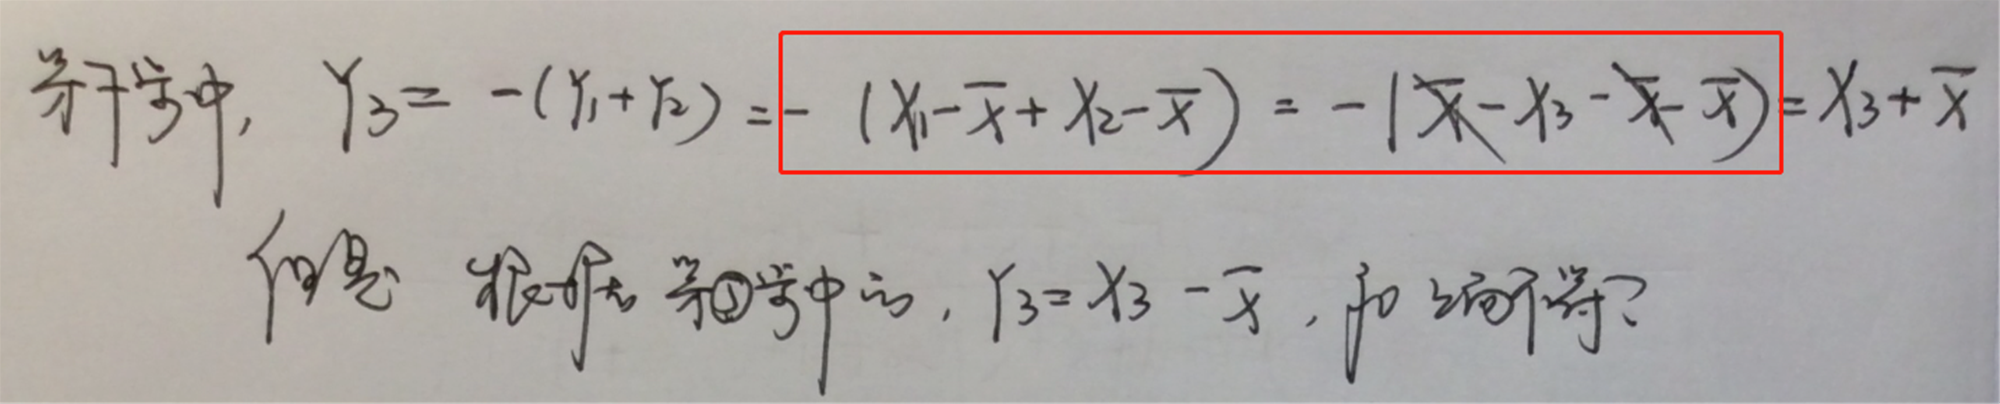 第7步中, Y₃ = -(Y₁+Y₂) = -(X₁-X̄+X₂-X̄) = -(X̄-X₃-X̄-X̄) = X₃+X̄
但是 根据 第⑤步中的, Y₃=X₃-X̄, 和 不符?